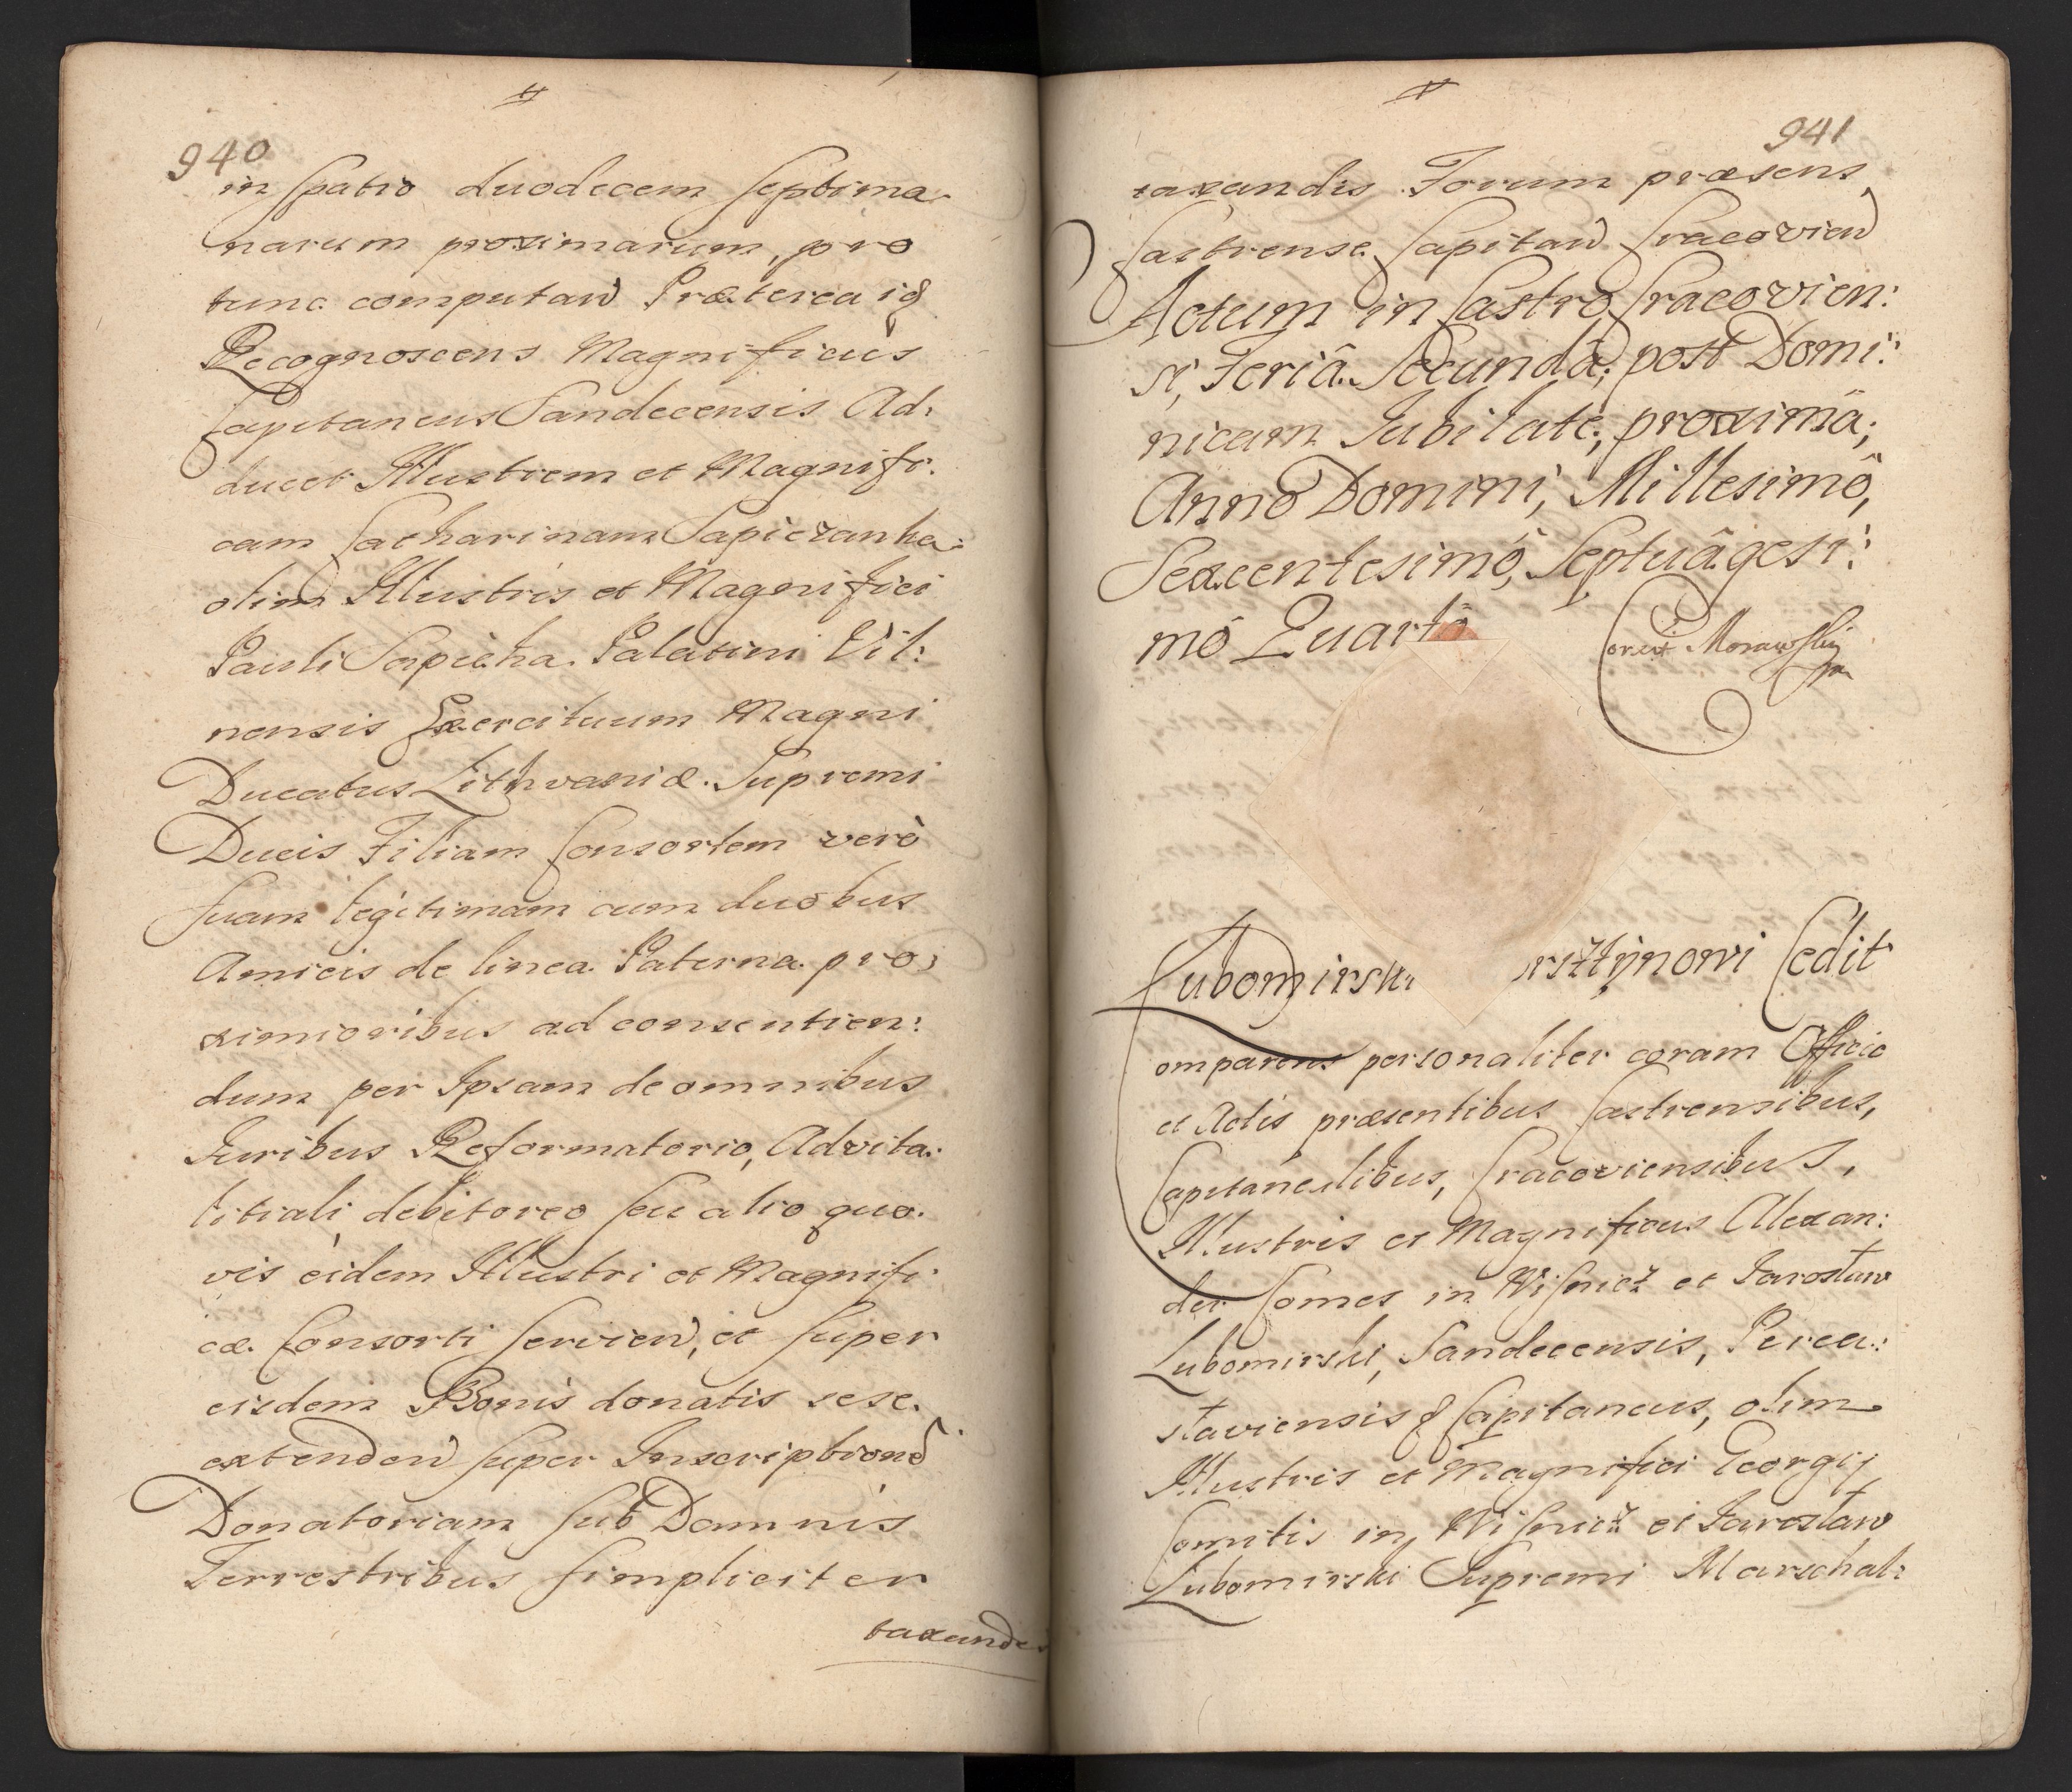 940
in spatio duodecem septima:
narum proximarum, pro
tunc computand Præterea id
Recognoscens Magnificus
Capitaneus Sandecensis Ad:
ducet Illustrem et Magnifi:
cam Catharinam Sapiezanka:
olim Illustris et Magnifici
Pauli Sapieha Palatini Vil:
nensis Exercituum Magni
Ducatus Lithvaniæ Supremi
Ducis Filiam Consortem verò
suam legitimam cum duobus
Amicis de linea Paterna pro:
ximioribus ad consentien:
dum per Ipsam de omnibus
Juribus Reformatorio, Advita:
litiali, debitoreo seu alio quo:
vis eidem Illustri et Magnifi:
cæ Consorti servien, et super
eisdem Bonis donatis sese
extenden super Inscription
Donatoriam sub Damnis
Terrestribus simpliciter
taxandis
941
taxandis Forum præsens
Castrense Capitan Cracovien
Actum in Castro Cracovien:
si, Feriâ Secundâ, post Domi:
nicam Jubilate, proximâ,
Anno Domini, Millesimô,
Sexcentesimô, Septuâgesi:
mô Quartô
Corexit Morawski
Lubomirski rsztÿnowi Cedit
omparens personaliter coram Officio
et Actis præsentibus Castrensibus,
Capitanealibus, Cracoviensibus,
Illustris et Magnificus Alexan:
der Comes in Wisnicz et Jarosław
Lubomirski, Sandecensis, Perea:
slaviensis & Capitaneus, olim
Illustris et Magnifici Georgij
Comitis in Wisnicz et Jarosław
Lubomirski Supremi Marschal: